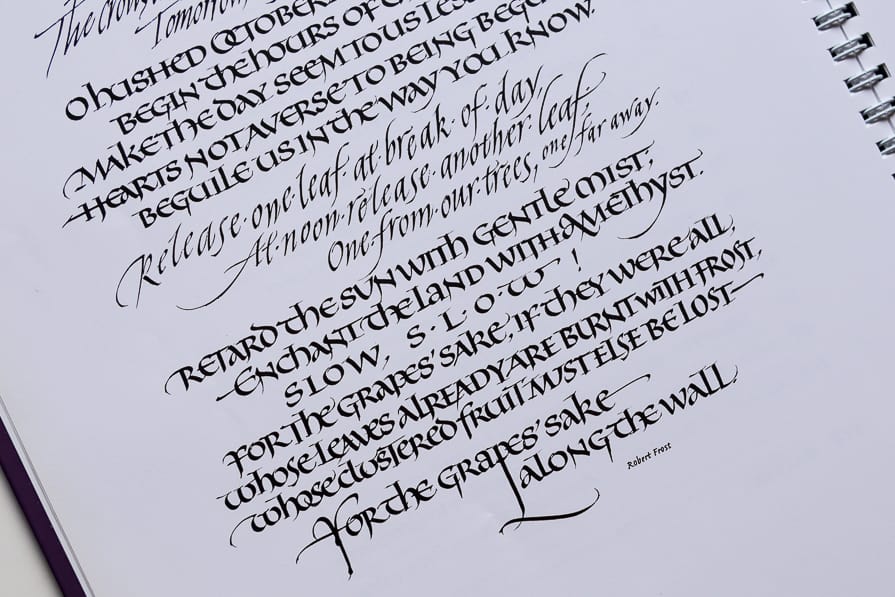 The crows
Tomorrow
O hushed OCTOBER
BEGIN the hours OF
MAKE THE DAY SEEM TO US LESS
HEARTS NOT AVERSE TO BEING BEGUI
BEGUILE US IN THE WAY YOU KNOW.
Release·one·leaf·at·break·of·day,
At·noon·release·another·leaf,
One·from·our·trees, one·far away.
RETARD THE SUN WITH GENTLE MIST;
ENCHANT THE LAND WITH AMETHYST.
SLOW, S·L·O·W !
FOR THE GRAPES' SAKE, IF THEY WERE ALL,
WHOSE LEAVES ALREADY ARE BURNT WITH FROST,
WHOSE CLUSTERED FRUIT MUST ELSE BE LOST—
FOR THE GRAPES' SAKE
ALONG THE WALL.
Robert Frost